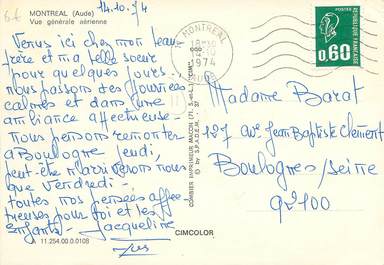 MONTREAL (Aude)
Vue générale aérienne
14.10.74
Venus ici chez mon beau
frère et ma belle soeur
pour quelques jours -
nous passons des journées
calmes et dans une
ambiance affectueuse -
nous pensons remonter
à Boulogne jeudi,
peut-être n'arriverons nous
que Vendredi -
toutes nos pensées affec-
tueuses pour toi et les
enfants - Jacqueline
A 11.254.00.0.0108
CIMCOLOR
COMBIER IMPRIMEUR MACON (71. S.-et-L.) "CIM"
© by S.P.A.D.E.M.
MONTREAL
1974
AUDE
POSTES
0,60
Madame Barat
127 Ave Jean Baptiste Clément
Boulogne s/Seine
92100